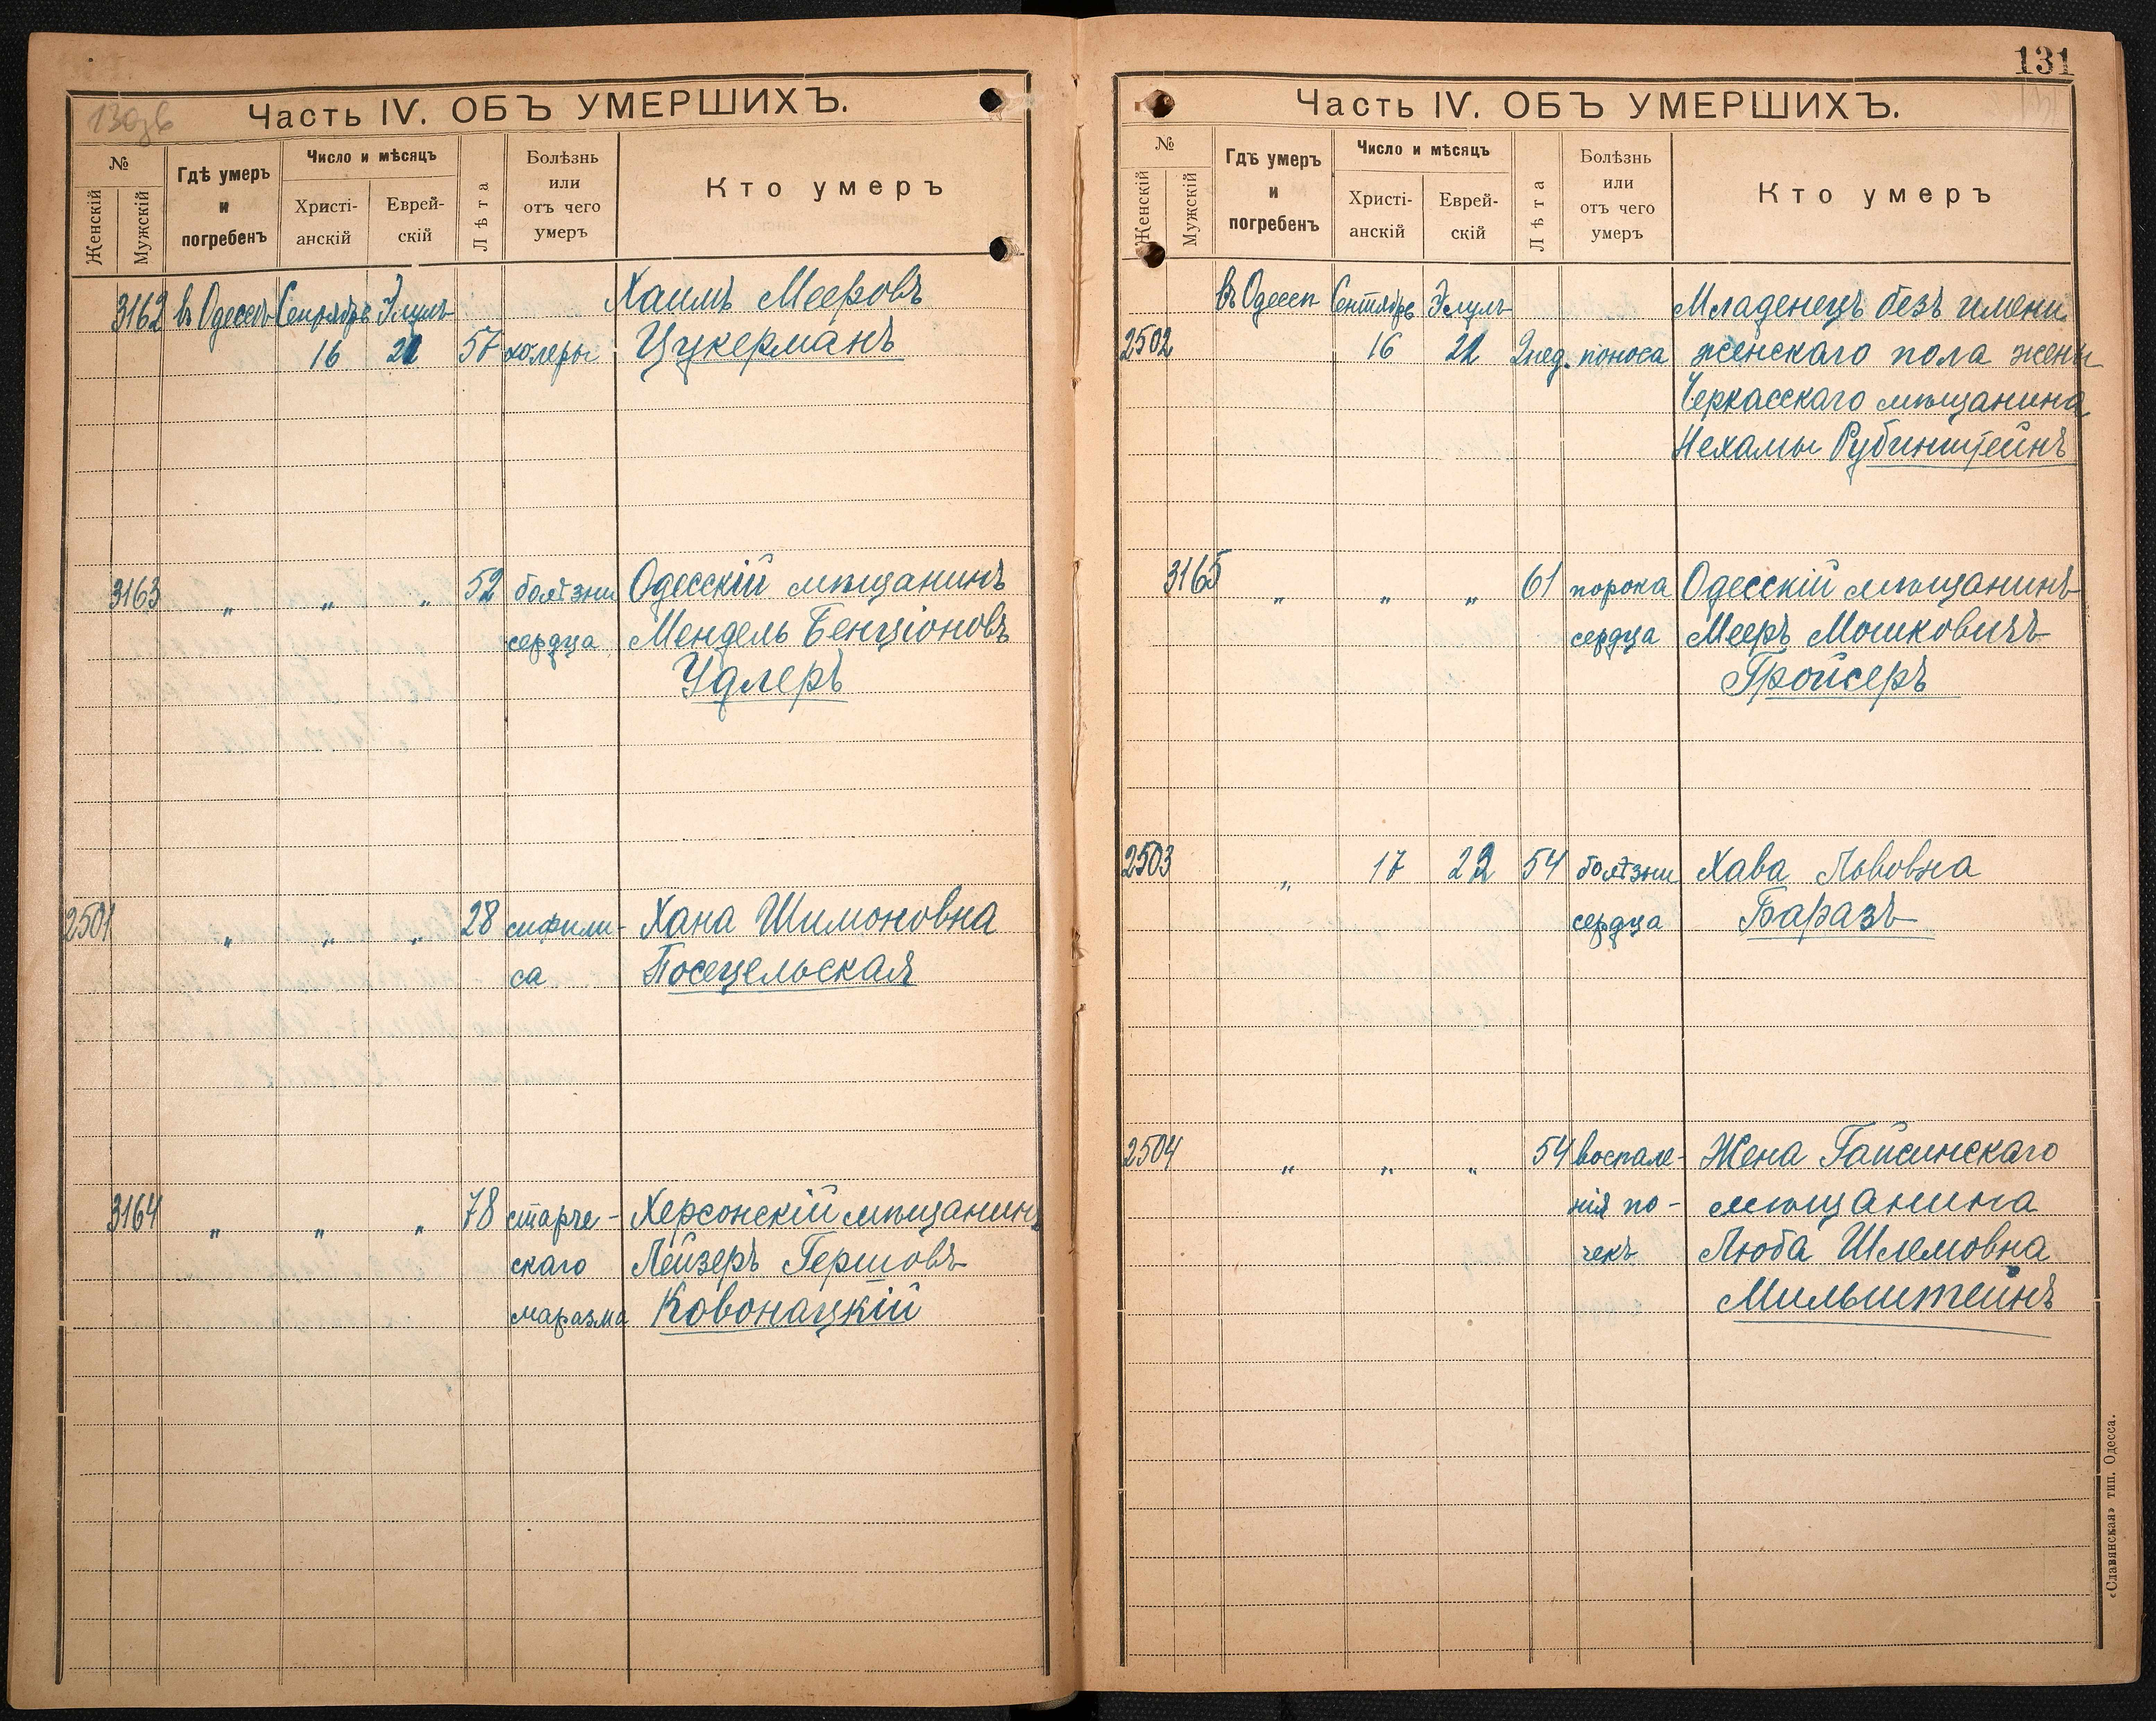 130 об
Часть IV. ОБЪ УМЕРШИХЪ.
№
Женскій
Мужскій
Гдѣ умеръ
и
погребенъ
Число и мѣсяцъ
Христі-
анскій
Еврей-
скій
Лѣта
Болѣзнь
или
отъ чего
умеръ
Кто умеръ
3162 въ Одессѣ Сентябрь Элулъ Хаимъ Мееровъ
16 21 57 холеры Цукерманъ
3163 " " " 52 болѣзни Одесскій мѣщанинъ
сердца Мендель Бенціоновъ
Удлеръ
2501 " " " 28 сифили- Хана Шимоновна
са Посецельская
3164 " " " 78 старче- Херсонскій мѣщанинъ
скаго Лейзеръ Гершовъ
маразма Ковонацкій
131
Часть IV. ОБЪ УМЕРШИХЪ.
№
Женскій
Мужскій
Гдѣ умеръ
и
погребенъ
Число и мѣсяцъ
Христі-
анскій
Еврей-
скій
Лѣта
Болѣзнь
или
отъ чего
умеръ
Кто умеръ
въ Одессѣ Сентябрь Элулъ Младенецъ безъ имени
2502 16 21 2 нед. поноса женскаго пола жены
Черкасскаго мѣщанина
Нехамы Рубинштейнъ
3165 " " " 61 порока Одесскій мѣщанинъ
сердца Мееръ Мошковичъ
Гройсеръ
2503 " 17 22 54 болѣзни Хава Львовна
сердца Баразъ
2504 " " " 54 воспале- Жена Гайсинскаго
нія по- мѣщанина
чекъ Люба Шлемовна
Мильштейнъ
«Славянская» тип. Одесса.